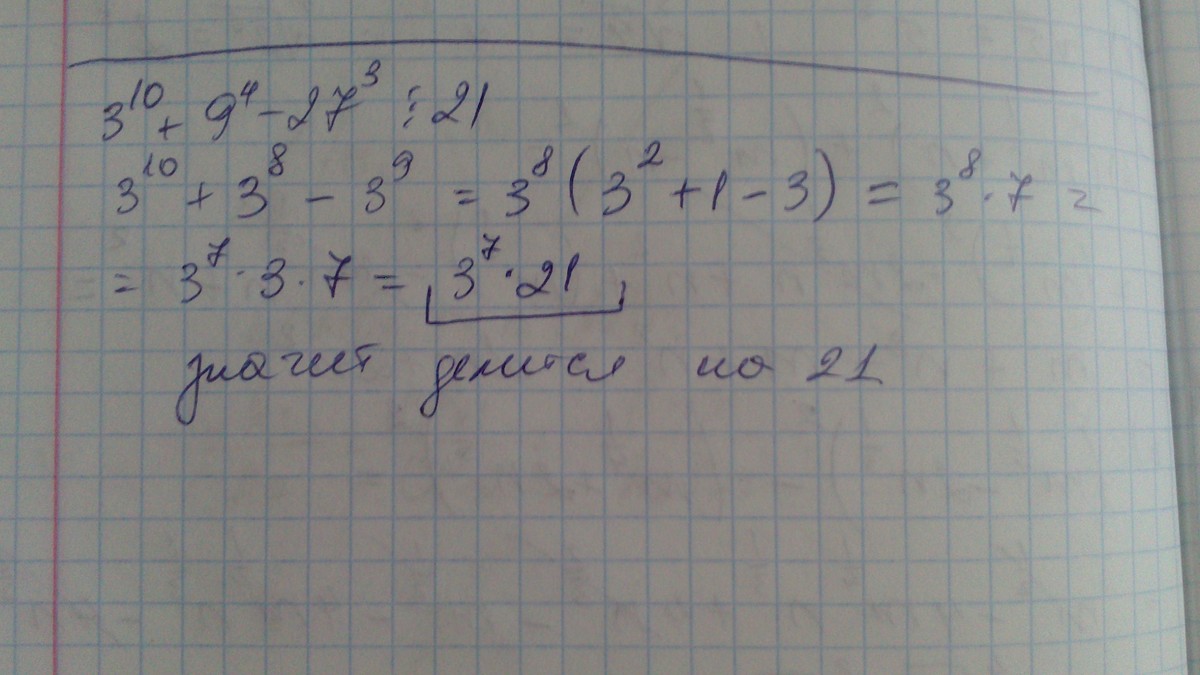 3¹⁰ + 9⁴ - 27³ ⋮ 21
3¹⁰ + 3⁸ - 3⁹ = 3⁸ (3² + 1 - 3) = 3⁸ · 7 =
= 3⁷ · 3 · 7 = 3⁷ · 21
значит делится на 21